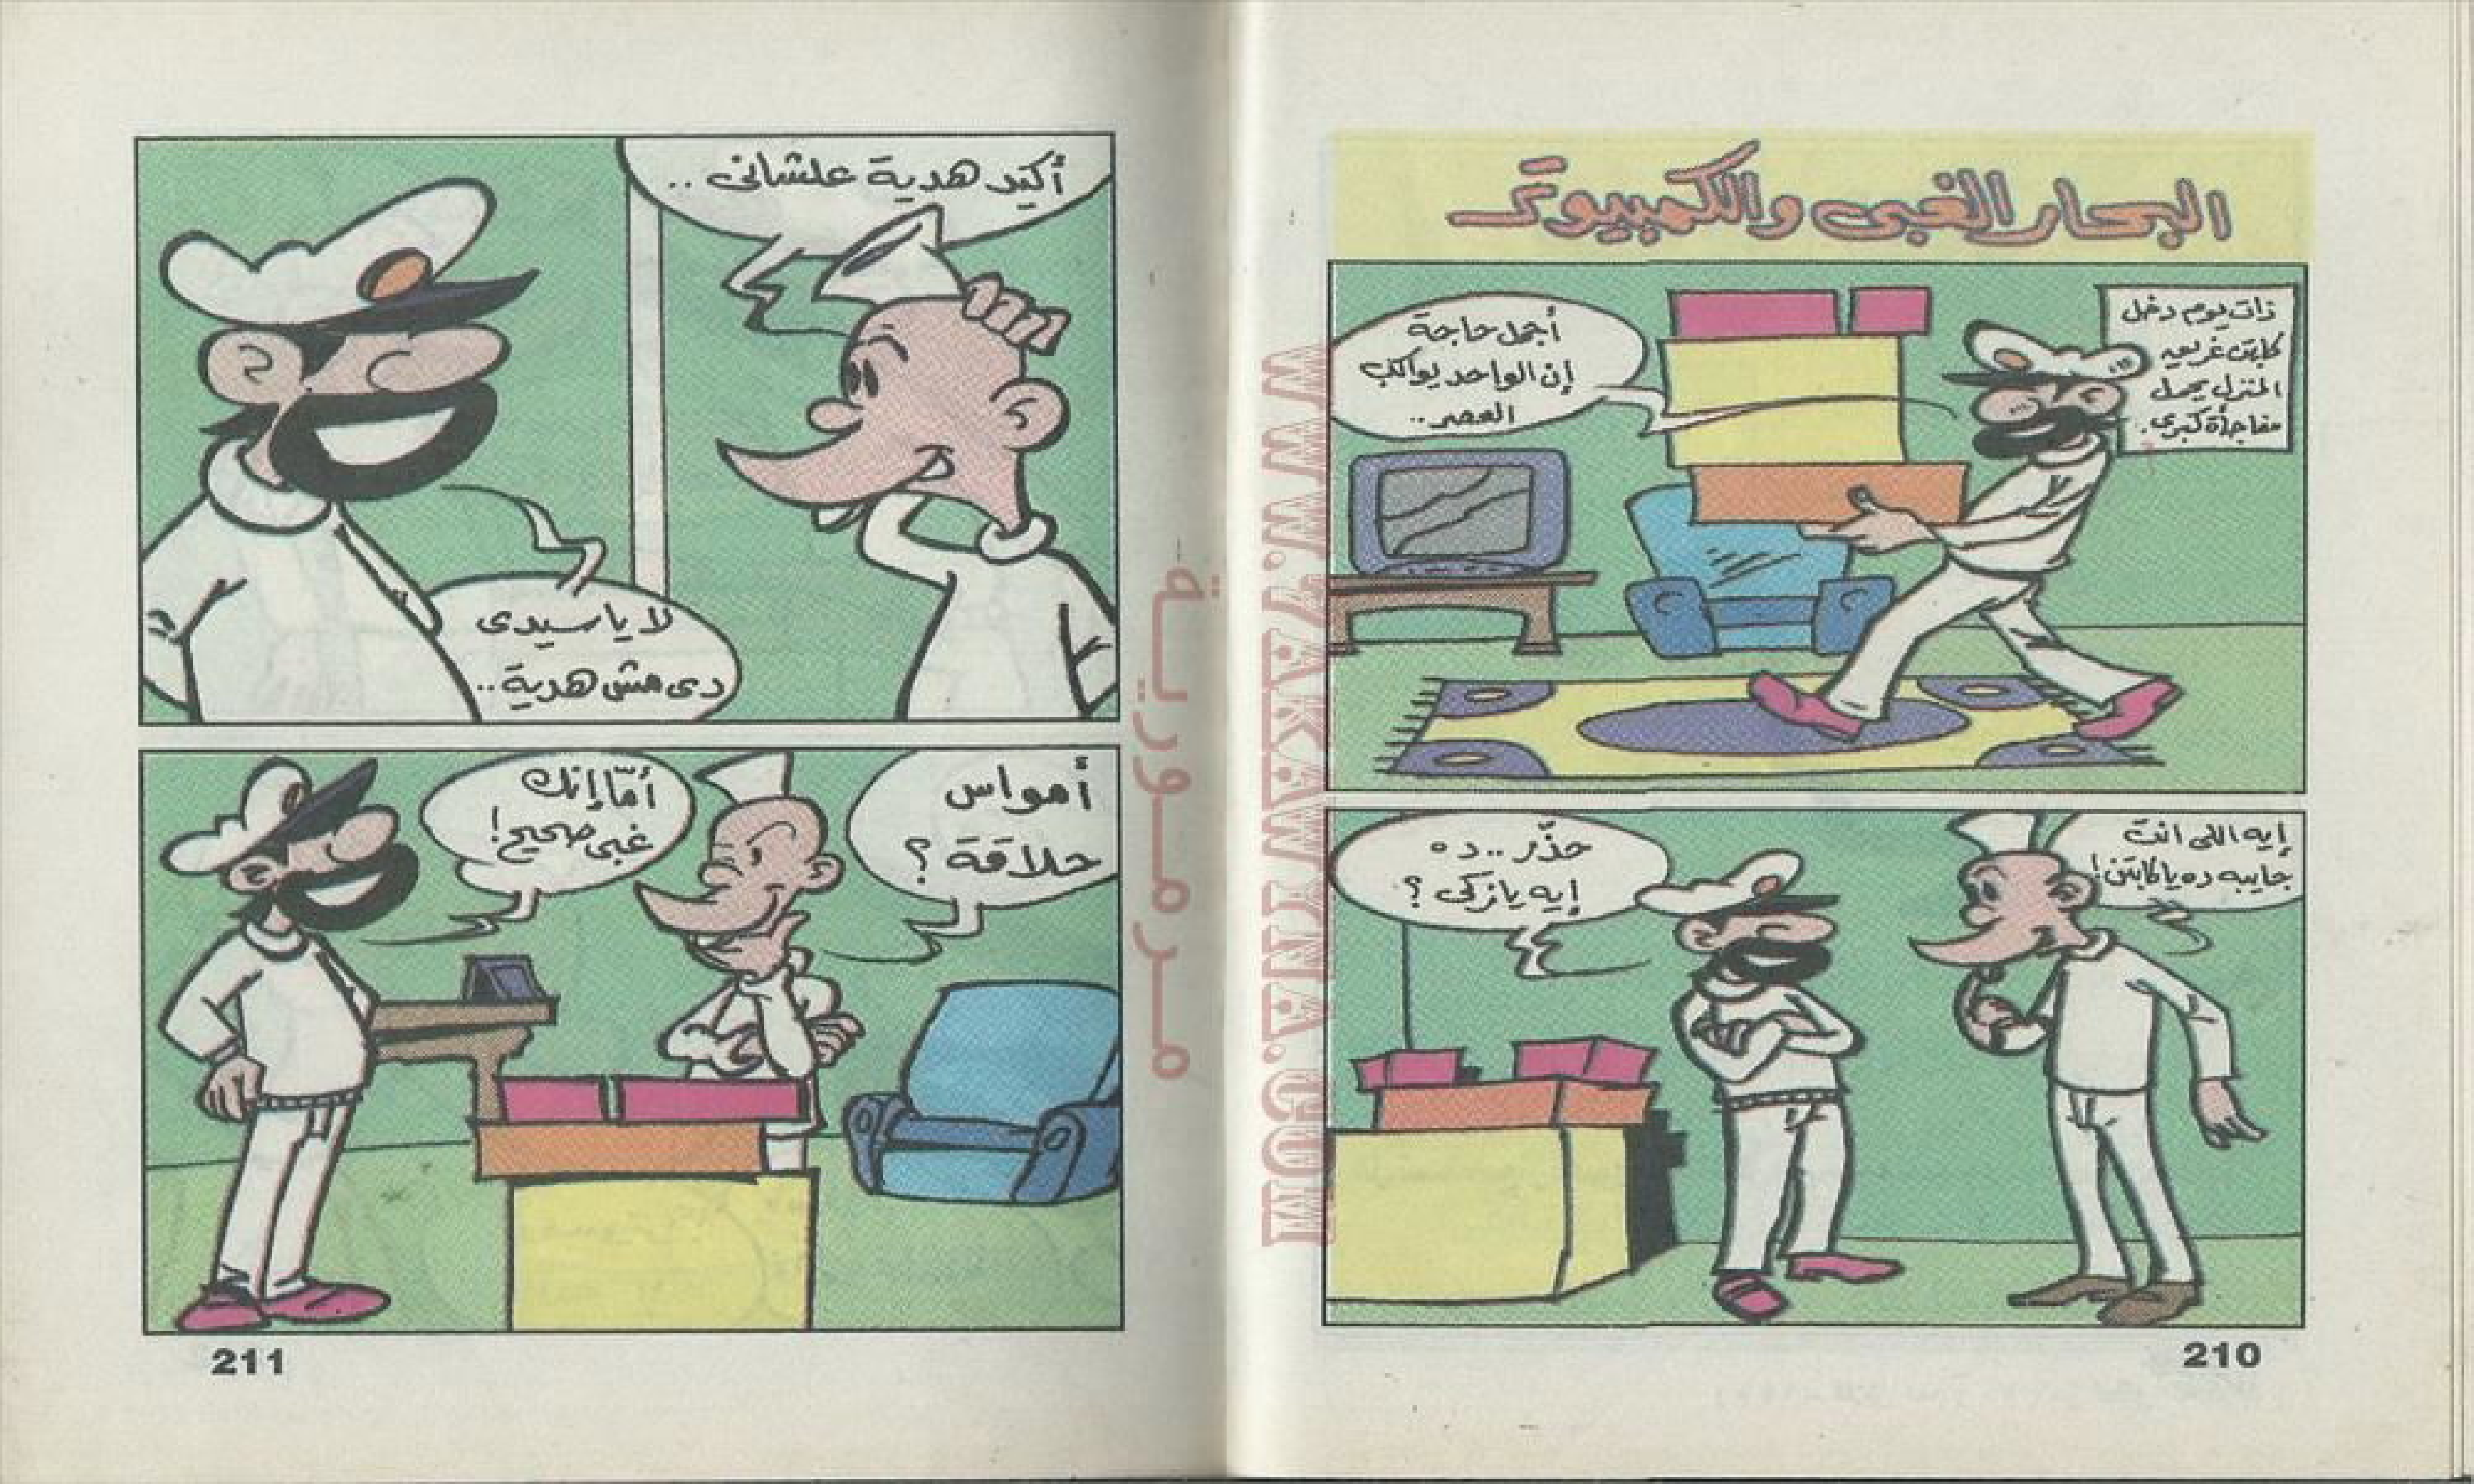 البحار الغبى والكمبيوتر
ذات يوم دخل
كابتن غريب
المنزل يحمل
مفاجأة كبرى.
أجمل حاجة
إن الواحد يواكب
العصر..
إيه اللى انت
جايبه ده يا كابتن!
حذّر.. ده
إيه يا زكى؟
210
أكيد هدية علشانى..
لا يا سيدى
دى مش هدية..
أمواس
حلاقة؟
أمّا إنك
غبى صحيح!
211
مرمورية